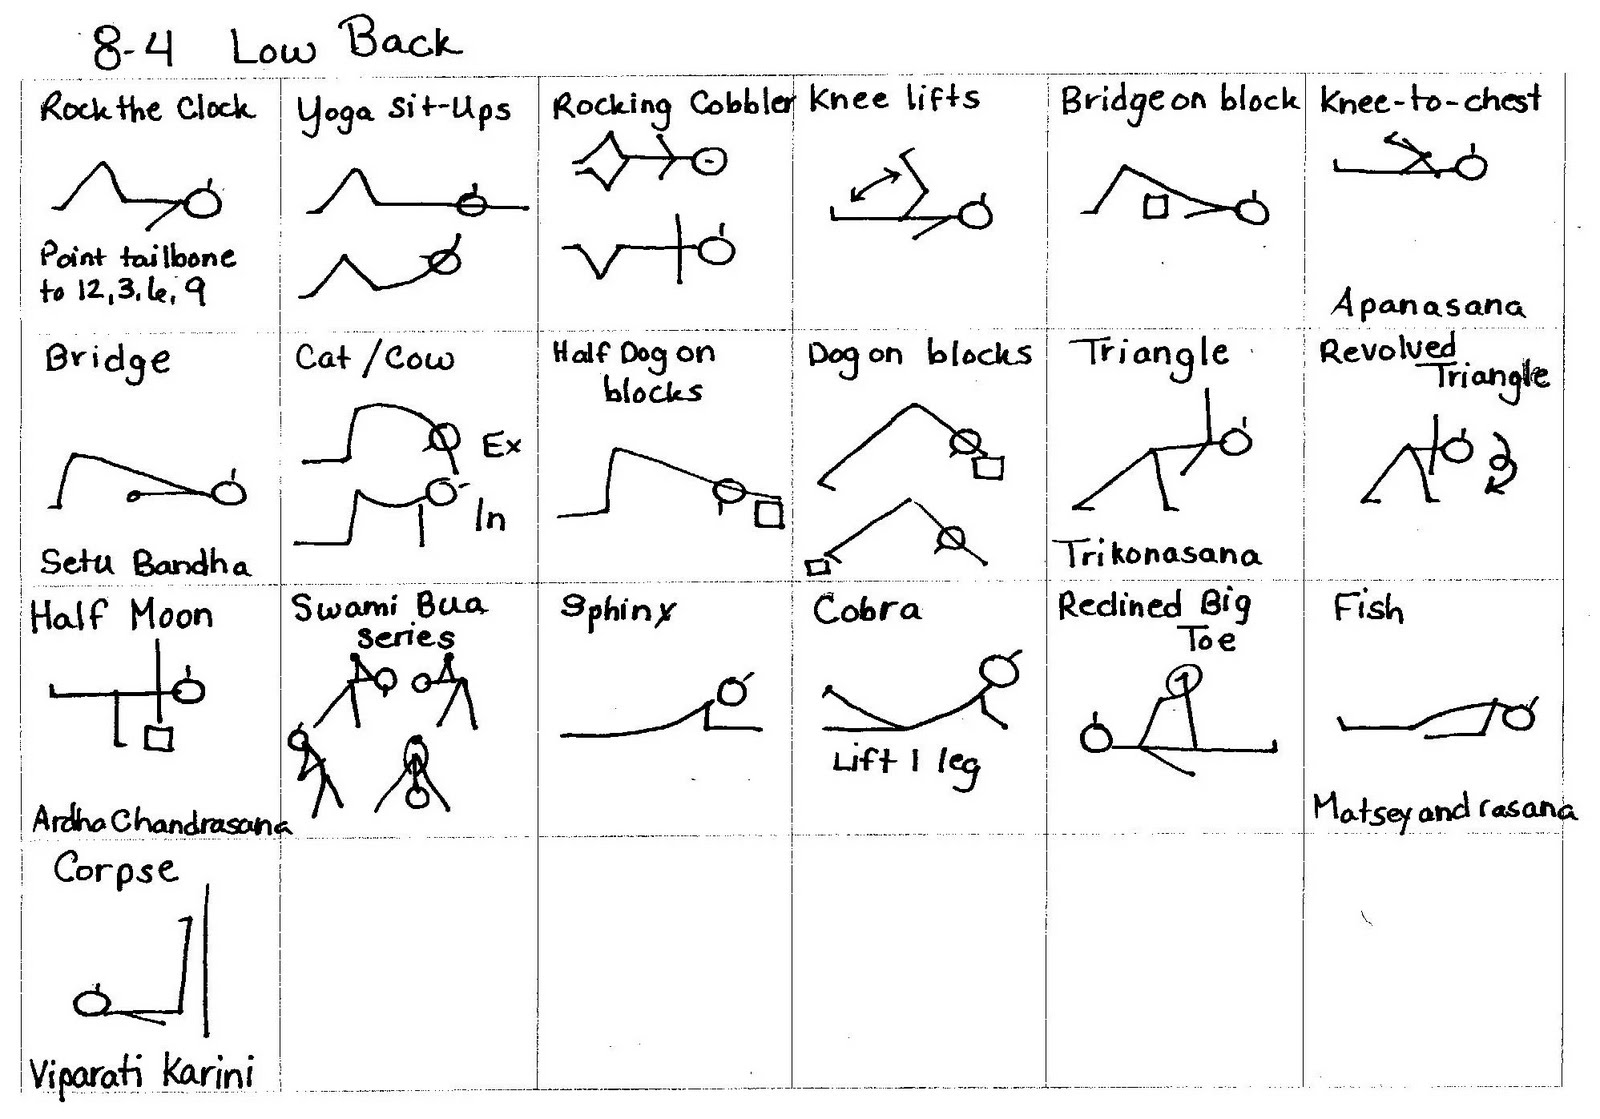 8-4 Low Back
Rock the Clock
Point tailbone
to 12, 3, 6, 9
Yoga Sit-Ups
Rocking Cobbler
Knee lifts
Bridge on block
Knee-to-chest
Apanasana
Bridge
Setu Bandha
Cat / Cow
Ex
In
Half Dog on
blocks
Dog on blocks
Triangle
Trikonasana
Revolved
Triangle
Half Moon
Ardha Chandrasana
Swami Bua
Series
Sphinx
Cobra
Lift 1 leg
Reclined Big
Toe
Fish
Matseyandrasana
Corpse
Viparati Karini